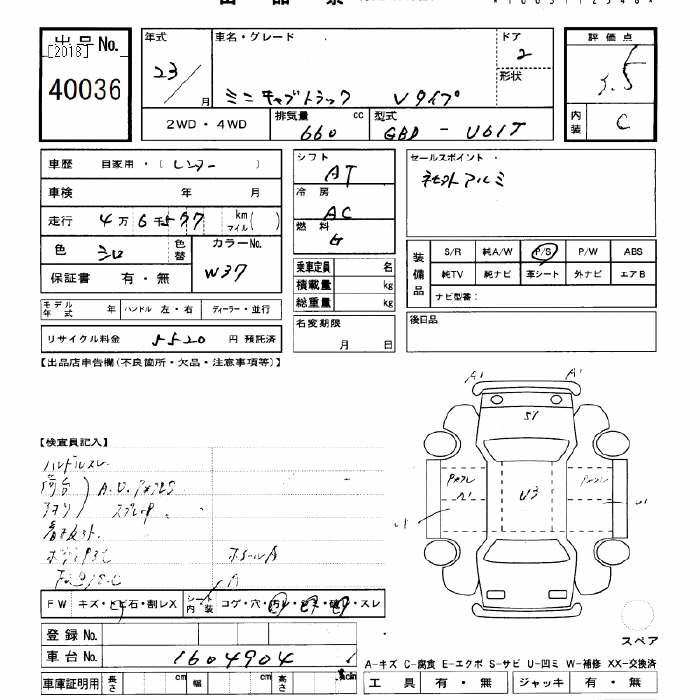 出品No.
[2018]
40036
年式
23/
月
車名・グレード
ミニキャブトラック Vタイプ
ドア
2
形状
評価点
3.5
内装
C
2WD・4WD
排気量 cc
660
型式
GBD - U61T
車歴 自家用・(レンター)
車検 年 月
走行 4万6千577 km マイル( )
色 シロ
色替
カラーNo.
W37
保証書 有・無
モデル年式 年
ハンドル 左・右
ディーラー・並行
リサイクル料金 5520 円 預託済
シフト
AT
冷房
AC
燃料
G
乗車定員 名
積載量 kg
総重量 kg
名変期限
月 日
セールスポイント・
社外アルミ
装備品
S/R 純A/W P/S P/W ABS
純TV 純ナビ 革シート 外ナビ エアB
ナビ型番:
後日品
【出品店申告欄(不良箇所・欠品・注意事項等)】
【検査員記入】
ハンドルスレ
荷台
アオリ
A.U.
ホールA
A
FW キズ・トビ石・割レX
シート内装 コゲ・穴・汚レ・シミ・破レ・スレ
登録No.
車台No. 1604904
車庫証明用 長さ cm 幅 cm 高さ cm
A1 A1
S1
U3
スペア
A-キズ C-腐食 E-エクボ S-サビ U-凹ミ W-補修 XX-交換済
工具 有・無 ジャッキ 有・無